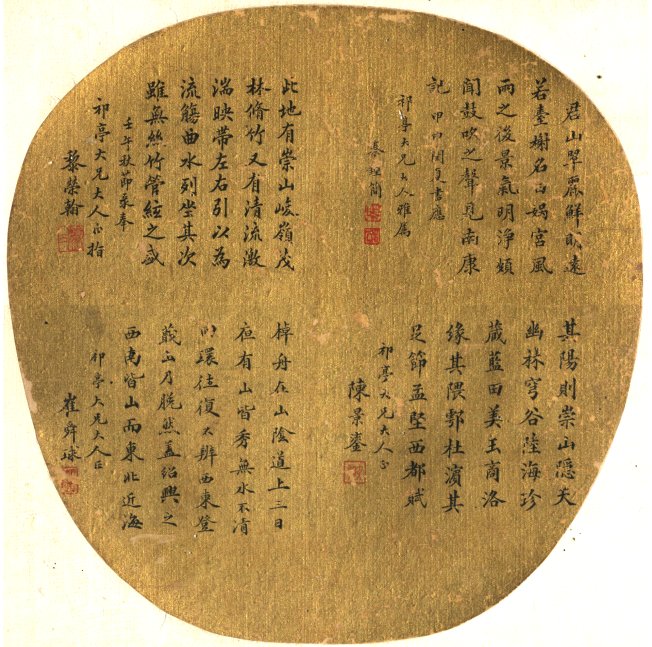 君山翠麗鮮眀遠
若臺榭名曰娲宮風
雨之後景氣明淨頗
聞鼓吹之聲見南康
記 甲申閏夏書應
祁亭大兄大人雅屬
綦 簡
此地有崇山峻嶺茂
林脩竹又有清流激
湍映帶左右引以為
流觴曲水列坐其次
雖無絲竹管絃之盛
壬午秋節录奉
祁亭大兄大人正指
黎榮翰
其陽則崇山隱天
幽林穹谷陸海珍
藏藍田美玉商洛
緣其隈鄠杜濱其
足節孟堅西都賦
祁亭大兄大人正
陳景鎏
棹舟在山陰道上三日
夜有山皆秀無水不清
回環往復不辨西東登
蕺山乃脫然盖紹興之
西南皆山而東北近海
祁亭大兄大人正
崔舜球